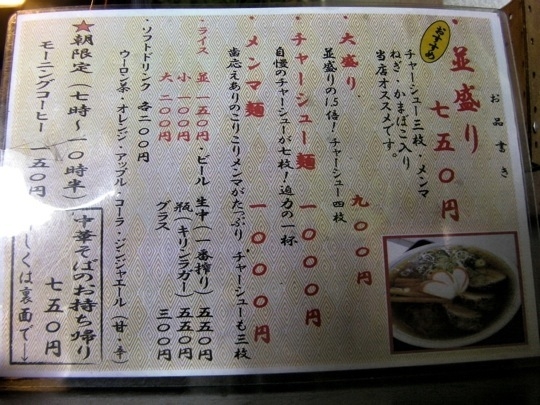 お品書き
おすすめ
・並盛り 七五〇円
チャーシュー三枚・メンマ
ねぎ・かまぼこ入り
当店オススメです。
・大盛り 九〇〇円
並盛りの1.5倍!チャーシュー四枚
・チャーシュー麺 一〇〇〇円
自慢のチャーシューが七枚!迫力の一杯
・メンマ麺 一〇〇〇円
歯応えありのこりこりメンマがたっぷり・チャーシューも三枚
・ライス 並 一五〇円
小 一〇〇円
大 二〇〇円
・ビール 生中(一番搾り) 五五〇円
瓶(キリンラガー) 五五〇円
グラス 三〇〇円
・ソフトドリンク 各二〇〇円
ウーロン茶・オレンジ・アップル・コーラ・ジンジャエール(甘・辛)
★朝限定(七時~一〇時半)
モーニングコーヒー 一五〇円
中華そばのお持ち帰り
七五〇円
しくは裏面で→